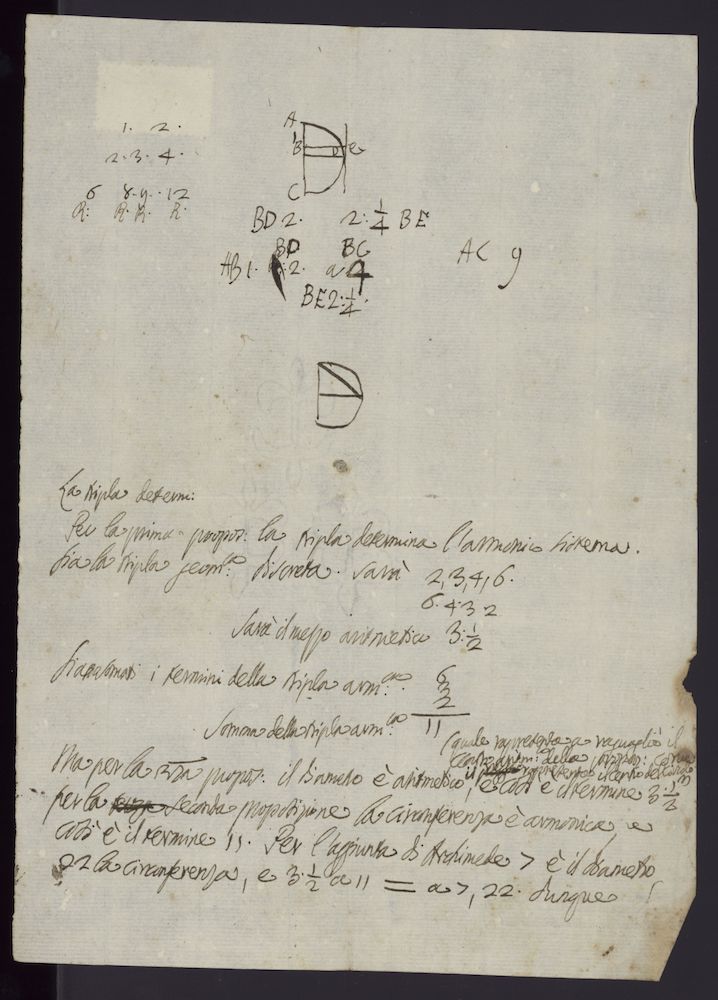 1. 2.
2. 3. 4.
6 8. 9. 12
R: R. R. R.
A
B D E
C
BD 2. 2:1/4 BE
BD BC
AB 1. 2. a 4
BE 2:1/4.
AC 9
La tripla determ:
Per la prima propos: la tripla determina l'armonico sistema.
Sia la tripla geom:ca discreta. Sarà 2, 3, 4, 6.
6. 4. 3. 2
Sarà il mezzo aritmetico 3:1/2
i termini della tripla arm:ca. 6
3
2
Somma della tripla arm:ca 11
(quale rapresenta a raguaglio il
centro aritm: della propos:
il rapresenta il centro del
Ma per la propos: il diametro è aritmetico, e così è il termine 3:1/2
per la seconda proposizione la circonferenza è armonica, e
così è il termine 11. Per l'aggiunta di Archimede 7 è il diametro
22 la circonferenza, e 3:1/2 a 11 = a 7, 22. dunque